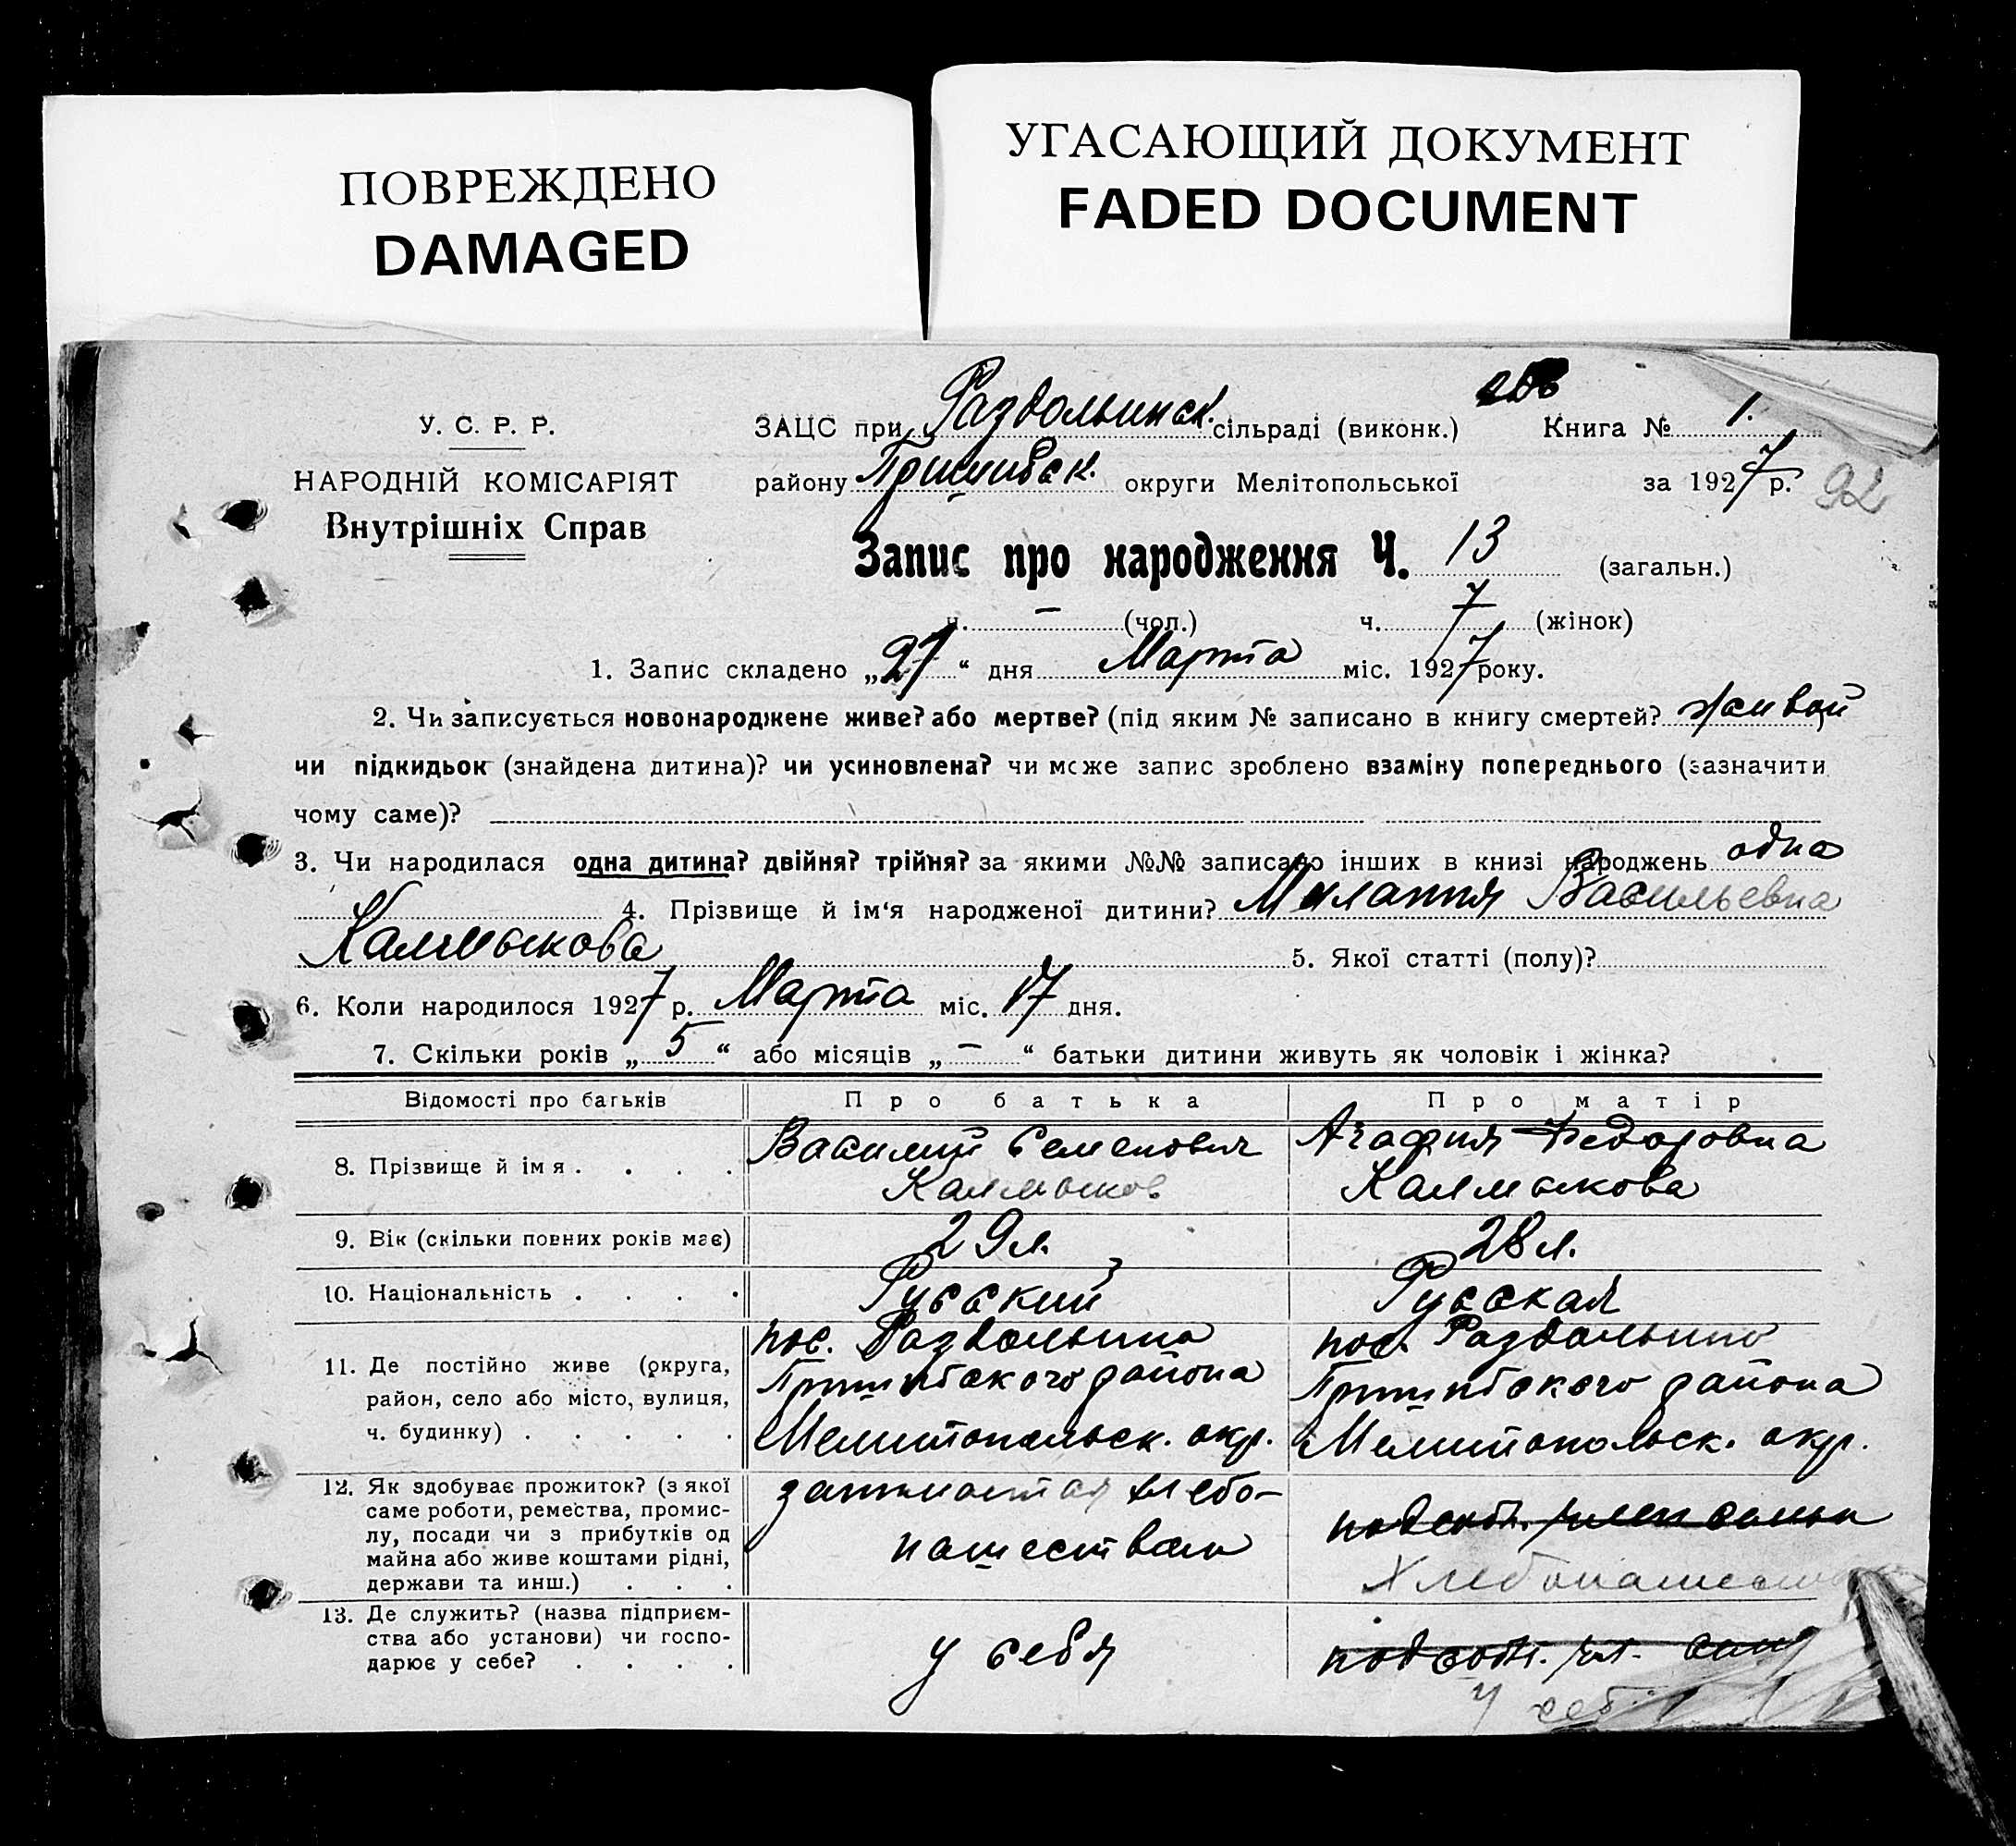 ПОВРЕЖДЕНО
DAMAGED
УГАСАЮЩИЙ ДОКУМЕНТ
FADED DOCUMENT
У. С. Р. Р.
НАРОДНІЙ КОМІСАРІЯТ
Внутрішніх Справ
ЗАЦС при Раздольинск. сільраді (виконк.) Книга № 1.
району Пришибск. округи Мелітопольської за 1927 р. 92
Запис про народження Ч. 13 (загальн.)
ч. — (чол.) ч. 7 (жінок)
1. Запис складено „27“ дня Марта міс. 1927 року.
2. Чи записується новонароджене живе? або мертве? (під яким № записано в книгу смертей? живой)
чи підкидьок (знайдена дитина)? чи усиновлена? чи може запис зроблено взаміну попереднього (зазначити
чому саме)?
3. Чи народилася одна дитина? двійня? трійня? за якими №№ записано інших в книзі народжень одна
4. Прізвище й ім‘я народженої дитини? Милания Васильевна
Калмыкова 5. Якої статті (полу)?
6. Коли народилося 1927 р. Марта міс. 17 дня.
7. Скільки років „5“ або місяців „—“ батьки дитини живуть як чоловік і жінка?
Відомості про батьків Про батька Про матір
8. Прізвище й імя . . . . Василий Семенович Калмыков Агафия Федоровна Калмыкова
9. Вік (скільки повних років має) 29 л. 28 л.
10. Національність . . . . Русский Русская
11. Де постійно живе (округа,
район, село або місто, вулиця,
ч. будинку) . . . . .
пос. Раздольина
Пришибского района
Мелитопольск. окр.
пос. Раздольино
Пришибского района
Мелитопольск. окр.
12. Як здобуває прожиток? (з якої
саме роботи, ремества, промис-
лу, посади чи з прибутків од
майна або живе коштами рідні,
держави та инш.) . . .
занимается хлебо-
пашеством
подсобн. член семьи
Хлебопашество
13. Де служить? (назва підприєм-
ства або установи) чи госпо-
дарює у себе? . . . .
у себя
подсобн. чл. семьи
у себ